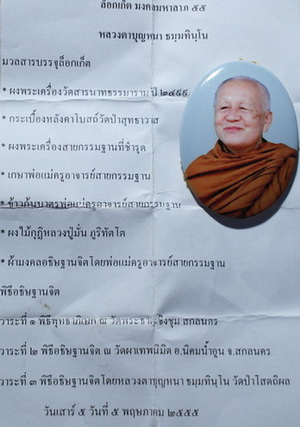 ล็อกเก็ต มงคลมหาลาภ ๕๕
หลวงตาบุญหนา ธมฺมทินฺโน
มวลสารบรรจุล็อกเก็ต
* ผงพระเครื่องวัดสารนาทธรรมาราม ปี ๒๔๙๙
* กระเบื้องหลังคาโบสถ์วัดป่าสุทธาวาส
* ผงพระเครื่องสายกรรมฐานที่ชำรุด
* เกษาพ่อแม่ครูอาจารย์สายกรรมฐาน
* ข้าวก้นบาตรพ่อแม่ครูอาจารย์สายกรรมฐาน
* ผงไม้กุฏิหลวงปู่มั่น ภูริทัตโต
* ผ้ามงคลอธิษฐานจิตโดยพ่อแม่ครูอาจารย์สายกรรมฐาน
พิธีอธิษฐานจิต
วาระที่ ๑ พิธีพุทธาภิเษก ณ วัดพระธาตุเชิงชุม สกลนคร
วาระที่ ๒ พิธีอธิษฐานจิต ณ วัดผาเทพนิมิต อ.นิคมน้ำอูน จ.สกลนคร
วาระที่ ๓ พิธีอธิษฐานจิตโดยหลวงตาบุญหนา ธมฺมทินฺโน วัดป่าโสตถิผล
วันเสาร์ ๕ วันที่ ๕ พฤษภาคม ๒๕๕๕